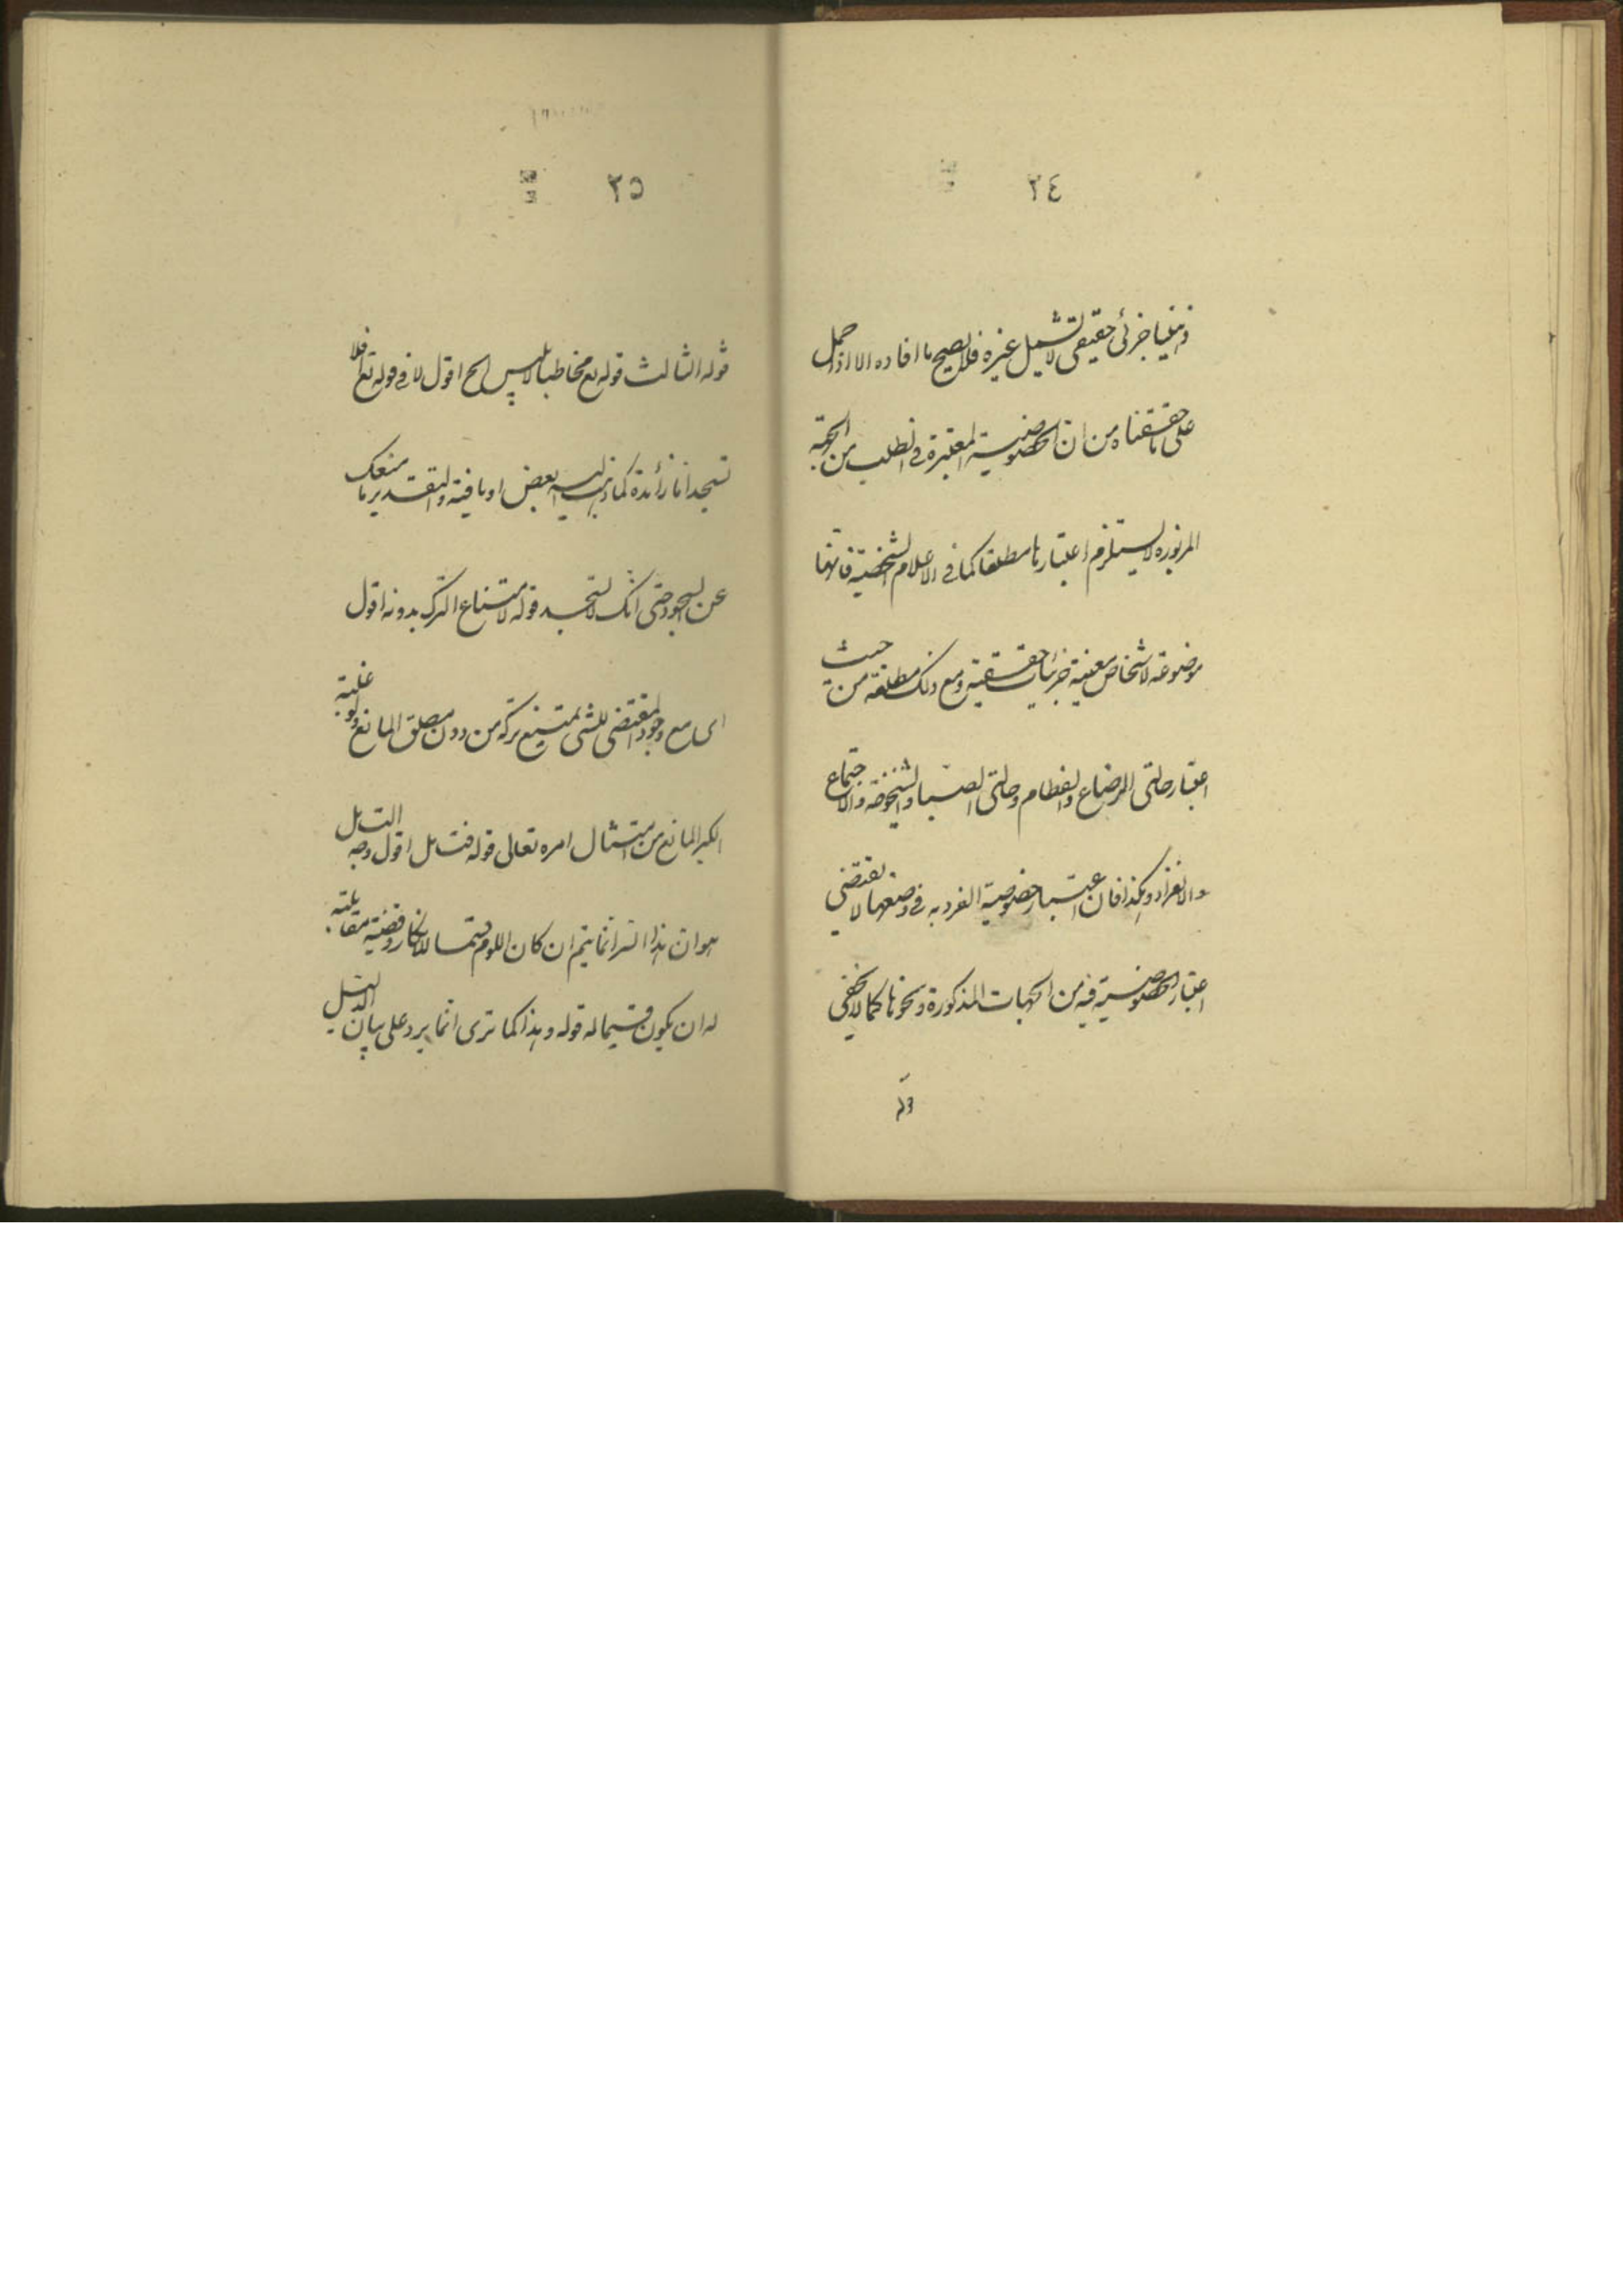 ٢٤
ذهنيا جزئى حقيقى لا يشمل غيره فلا يصح ما افاده الا اذا حمل
على ما حققناه من ان الخصوصية المعتبرة فى الطلب من الجهة
المزبورة لا يستلزم اعتبارها مطلقا كما فى الاعلام الشخصية فانها
موضوعة لاشخاص معينة جزئيات حقيقية ومع ذلك مطلقة من حيث
اعتبار حالتى الرضاع والفطام وحالتى الصبا والشيخوخة والاجتماع
والانفراد وهكذا فان اعتبار خصوصية الفردية فى وضعها لا يقتضى
اعتبار الخصوصية فيه من الجهات المذكورة ونحوها كما لا يخفى
٢٥
قوله الثالث قوله تع مخاطبا لابليس الخ اقول لا فى قوله تع الا
تسجد اما زائدة كما ذهب اليه بعض او نافية والتقدير ما منعك
عن السجود حتى انك لا تسجد قوله لامتناع الترك بدونه اقول
اى مع وجود المقتضى للشئ يمتنع تركه من دون مطلق المانع ولو غلبة
الكبر المانع من امتثال امره تعالى قوله فتامل اقول وجه التامل
هو ان هذا انما يتم ان كان اللوم قسما للانكار وقضية مقابلته
له ان يكون قسيما له قوله وهذا كما ترى انما يرد على بيان الدليل